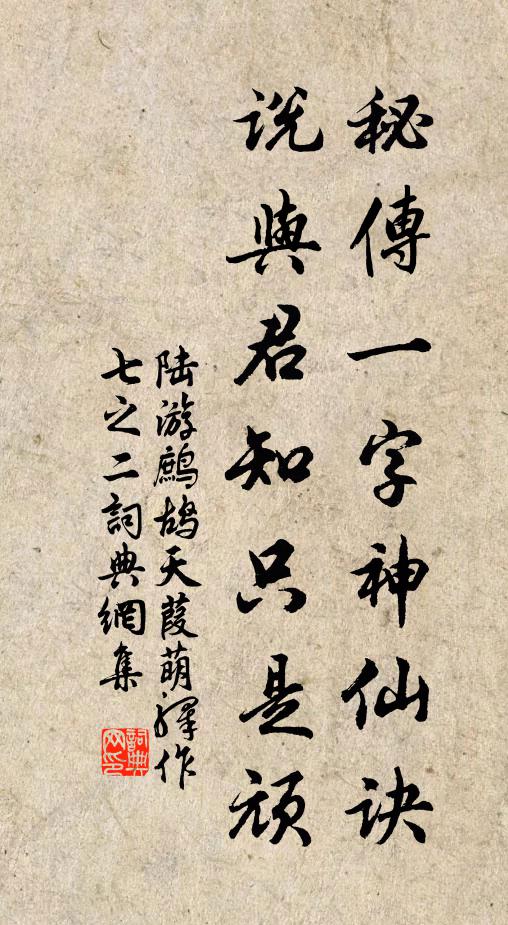 秘傳一字神仙訣
說與君知只是頑
陆游鷓鴣天葭萌驛作
七之二詞典網集
詞典网印